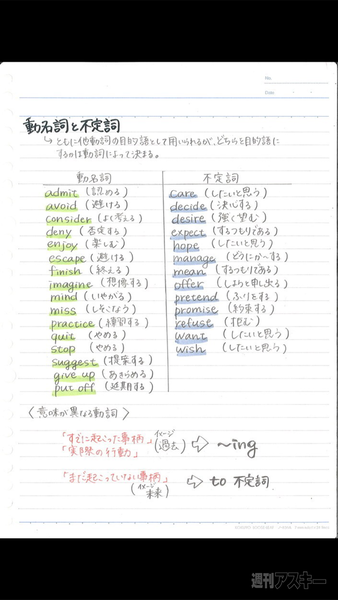 No.
Date
動名詞と不定詞
↳ ともに他動詞の目的語として用いられるが、どちらを目的語に
するかは動詞によって決まる。
動名詞 不定詞
admit (認める) care (したいと思う)
avoid (避ける) decide (決心する)
consider (よく考える) desire (強く望む)
deny (否定する) expect (するつもりである)
enjoy (楽しむ) hope (したいと思う)
escape (避ける) manage (どうにか〜する)
finish (終える) mean (するつもりである)
imagine (想像する) offer (しようと申し出る)
mind (いやがる) pretend (ふりをする)
miss (しそこなう) promise (約束する)
practice (練習する) refuse (拒む)
quit (やめる) want (したいと思う)
stop (やめる) wish (したいと思う)
suggest (提案する)
give up (あきらめる)
put off (延期する)
〈意味が異なる動詞〉
「すでに起こった事柄」
「実際の行動」 (イメージ 過去) ⇨ 〜ing
「まだ起こっていない事柄」 (イメージ 未来) ⇨ to 不定詞
週刊アスキー